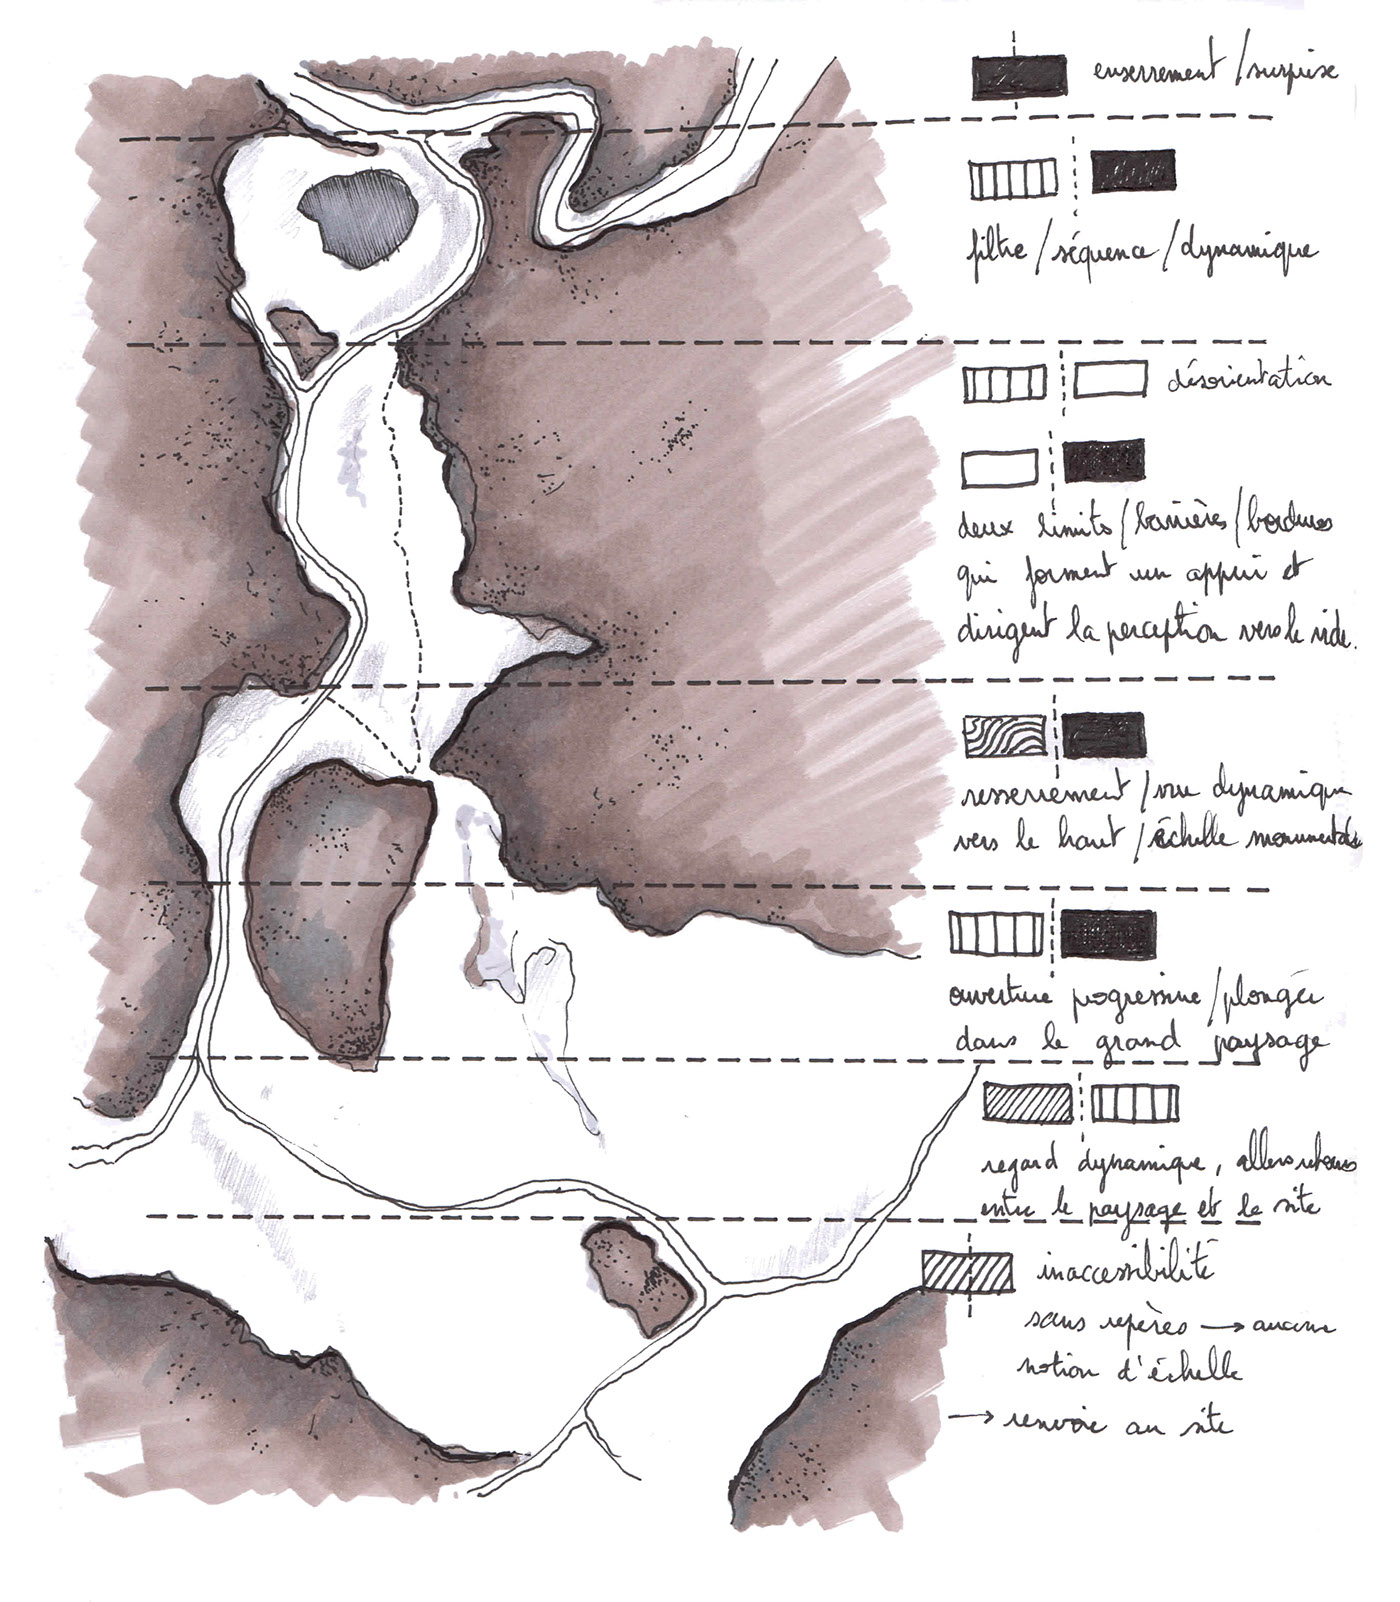 enserrement / surprise
filtre / séquence / dynamique
désorientation
deux limits / barrières / bordures
qui forment un appui et
dirigent la perception vers le vide.
resserrement / vue dynamique
vers le haut / échelle monumentale
ouverture progressive / plongée
dans le grand paysage
regard dynamique, allers retours
entre le paysage et le site
inaccessibilité
sans repères → aucune
notion d'échelle
→ renvoie au site